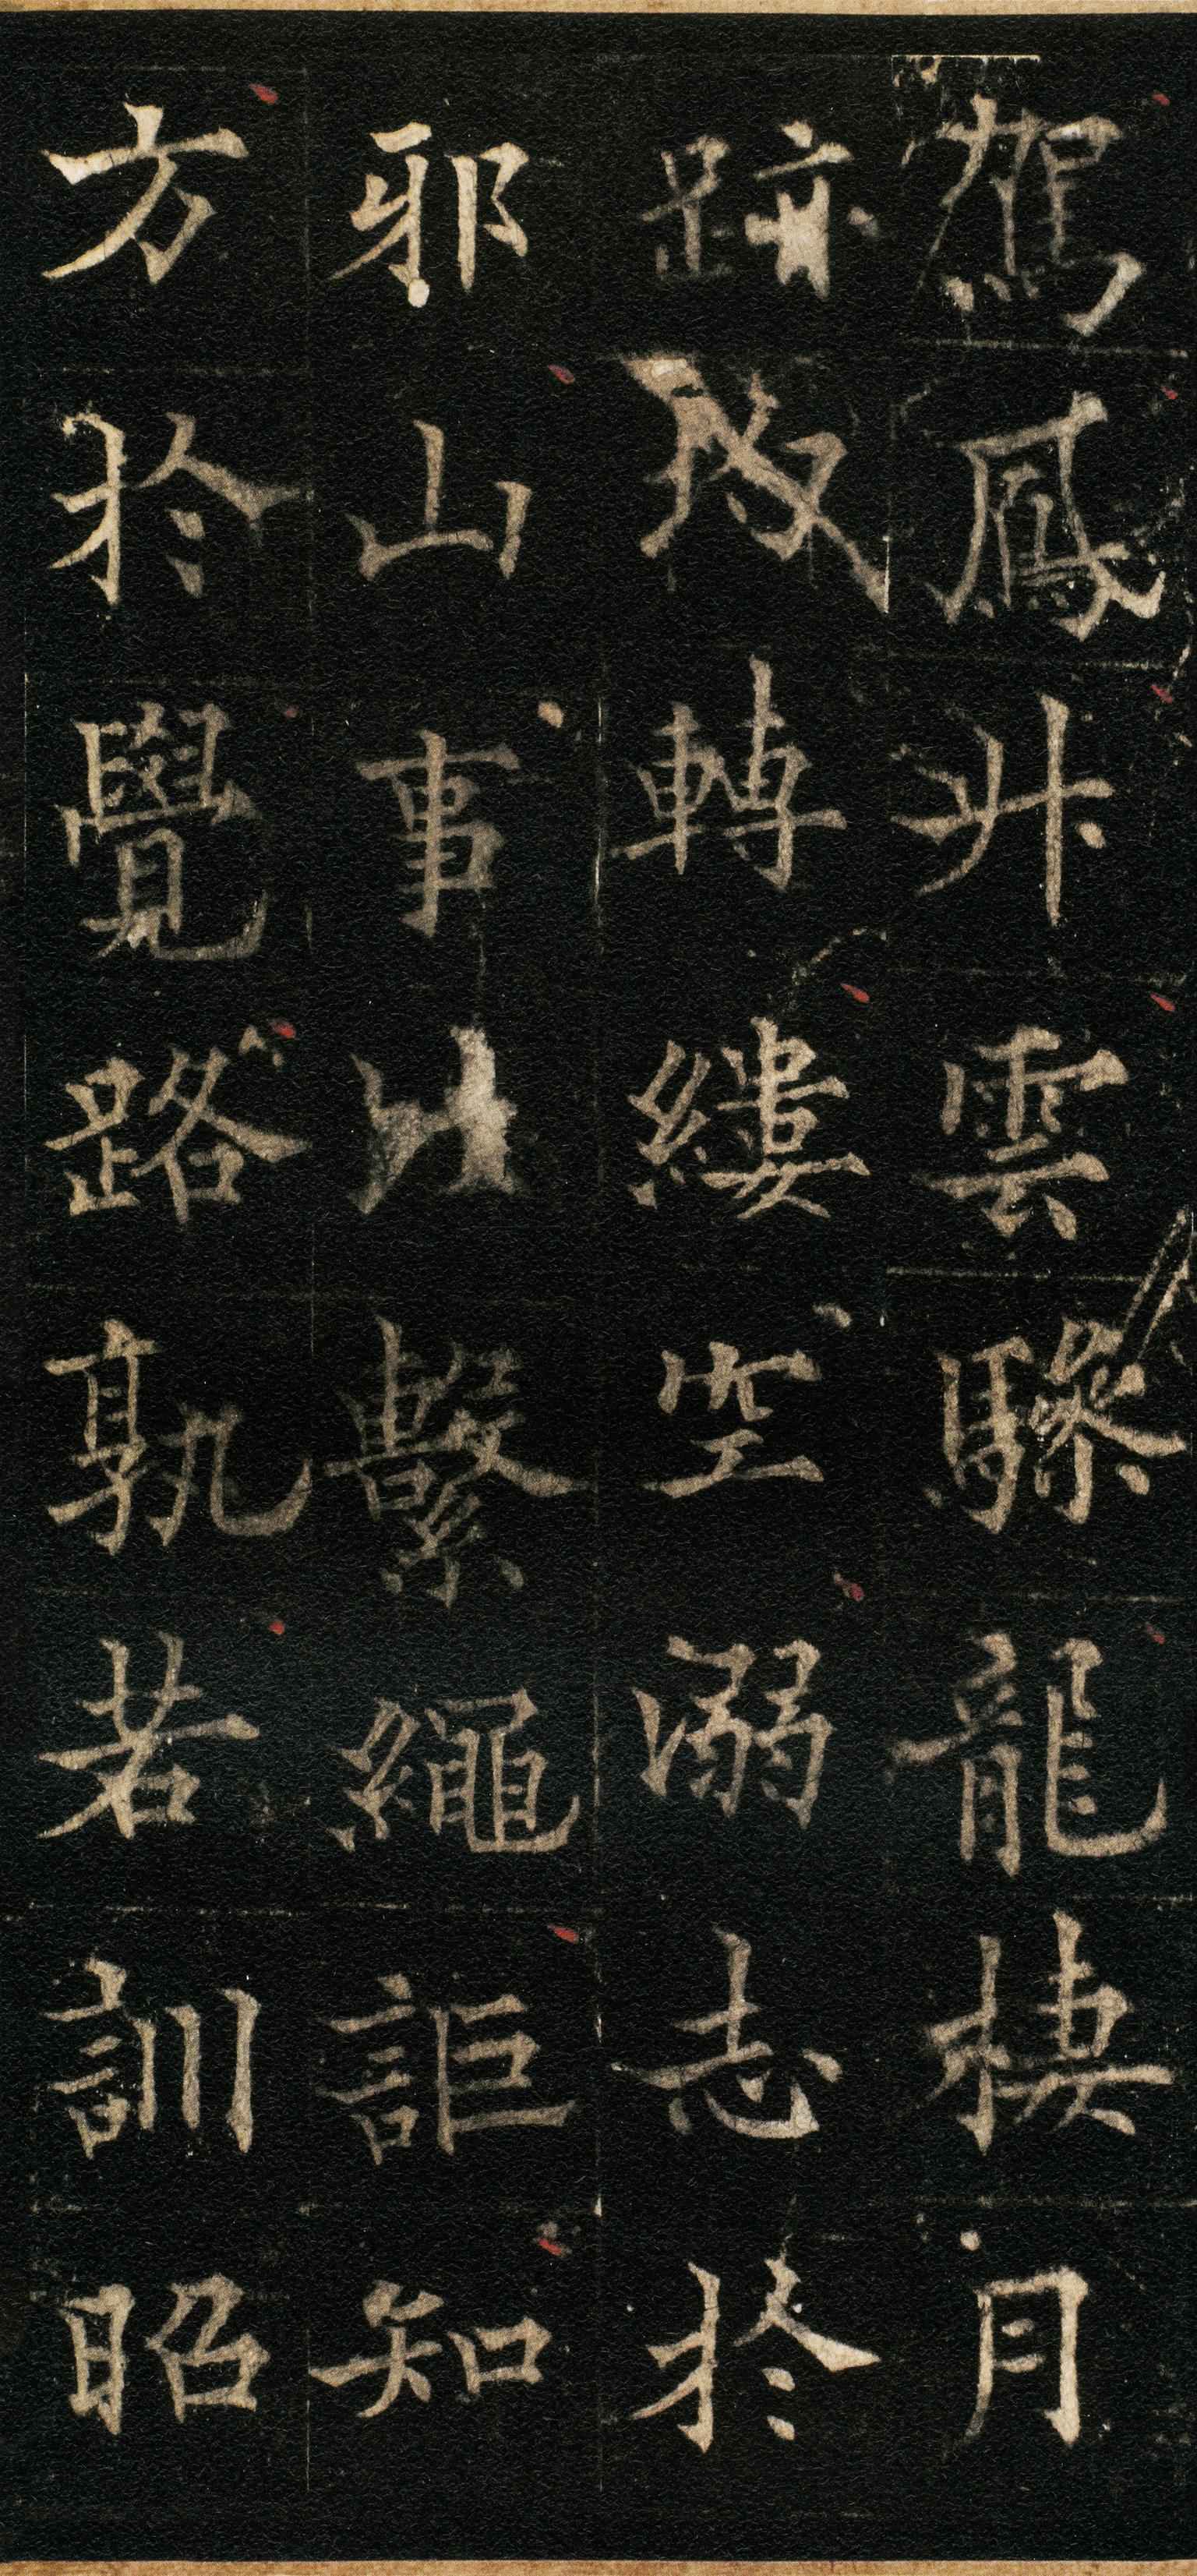 駕鳳升雲驂龍棲月
跡轉縷空溺志於
邪山事繫繩詎知
方於覺路孰若訓昭